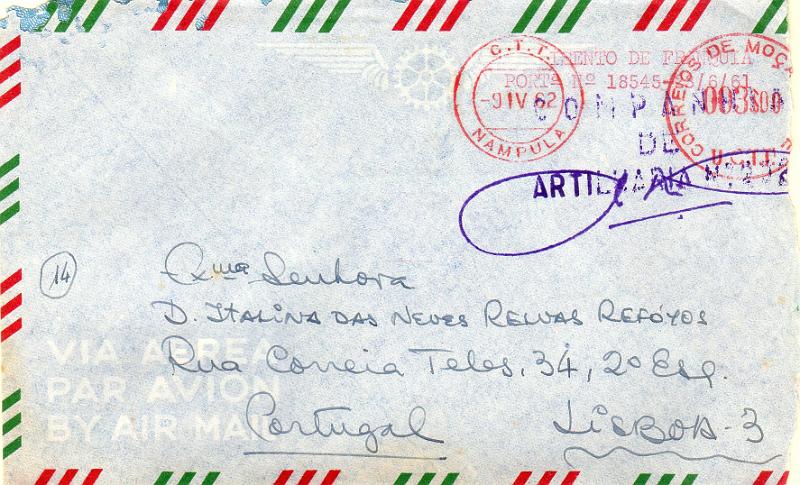 C.T.T.
-9 IV 62
NAMPULA
DE FRANQUIA
PORTª Nº 18545
/6/61
CORREIOS DE MOÇA
003$00
U.C.T.T.
COMPANHIA
DE
ARTILHARIA
14
Exmª Senhora
D. ITALINA DAS NEVES RELVAS REFÓYOS
Rua Correia Teles, 34, 2º Esq.
Portugal LISBOA-3
VIA AEREA
PAR AVION
BY AIR MAIL